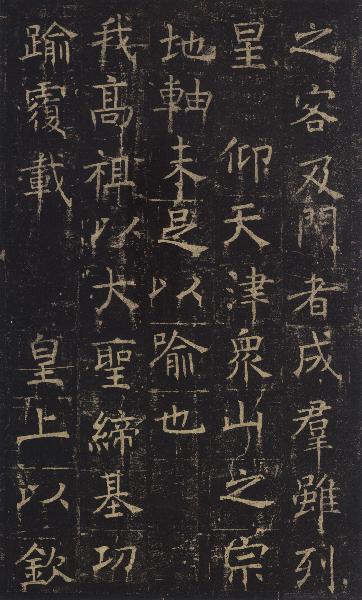 之客及門者成羣雖列
星 仰天津衆山之宗
地軸未足以喻也
我高祖以大聖締基功
踰覆載 皇上以欽